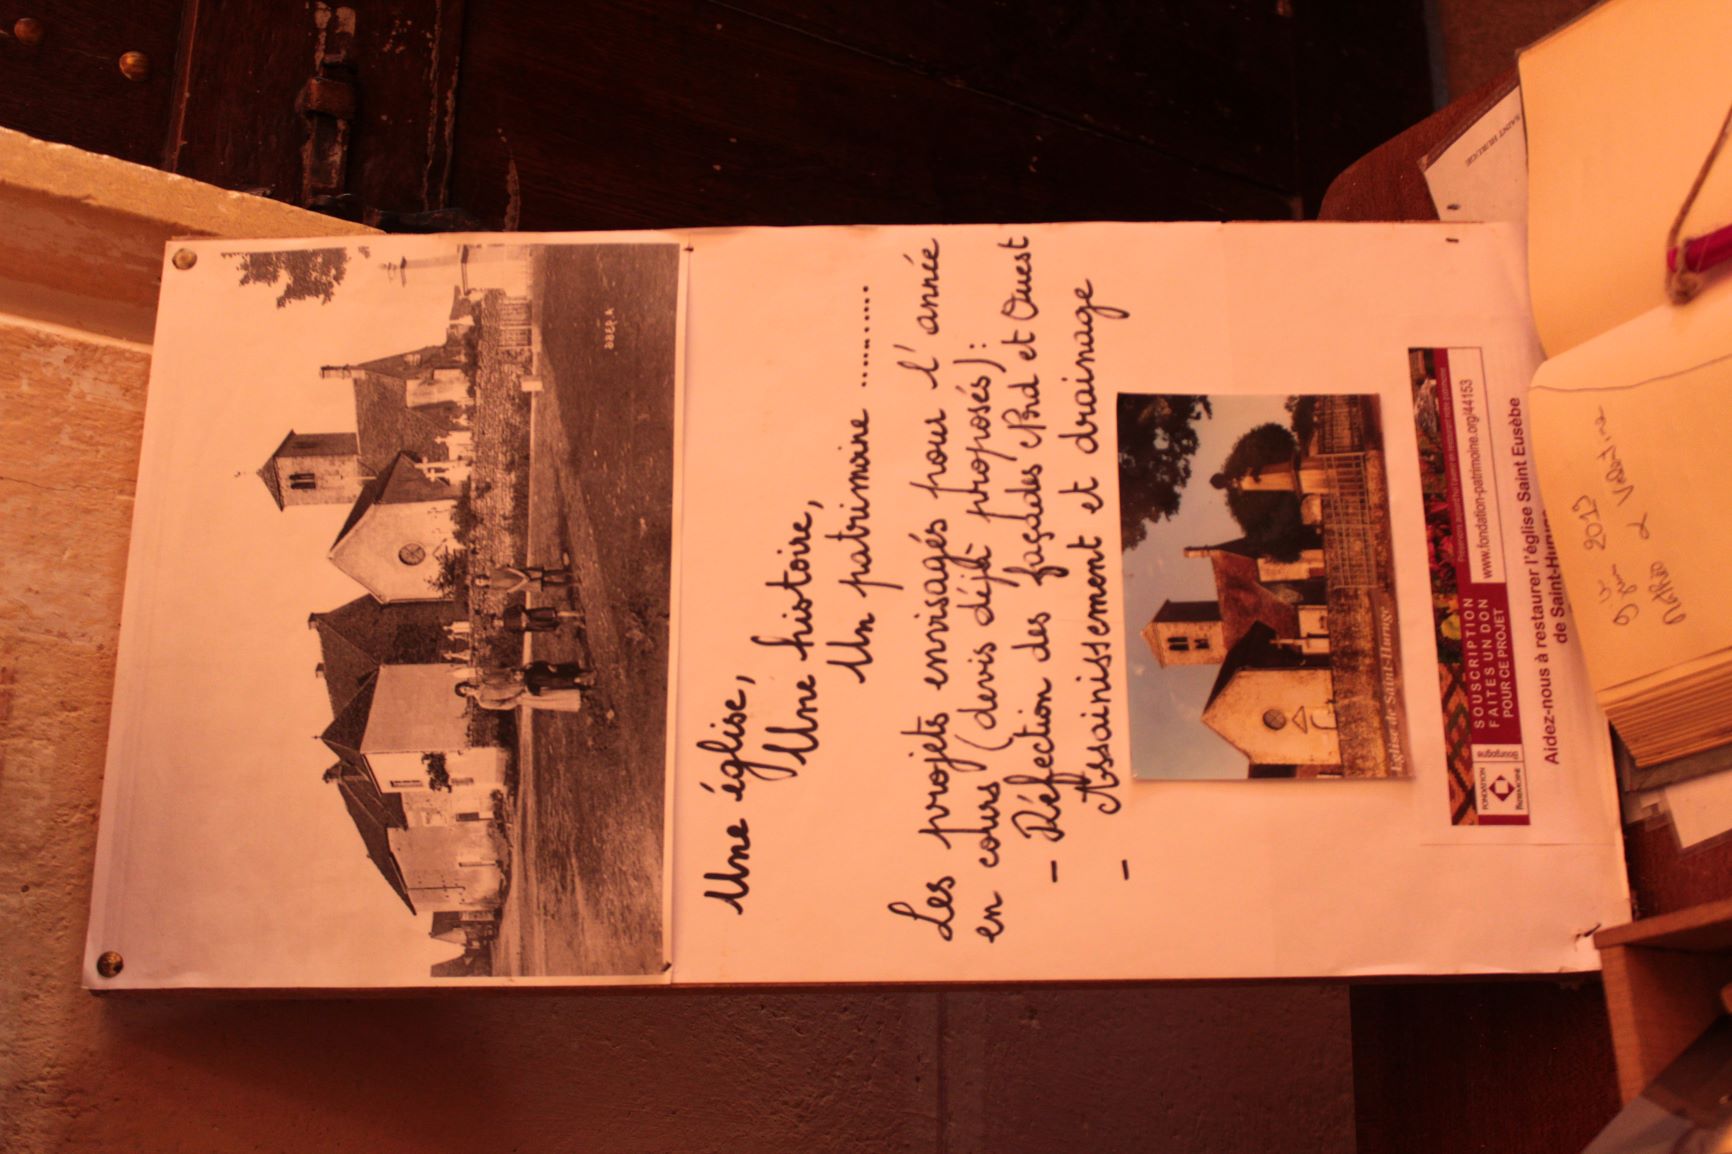 Une église,
Une histoire,
Un patrimoine
Les projets envisagés pour l'année
en cours (devis déjà proposés) :
- Réfection des façades Nord et Ouest
- Assainissement et drainage
Eglise de Saint-Huruge
FONDATION
PATRIMOINE
Bourgogne
SOUSCRIPTION
FAITES UN DON
POUR CE PROJET
www.fondation-patrimoine.org/44153
Aidez-nous à restaurer l'église Saint Eusèbe
de Saint-Huruge
SAINT HURUGE
2017